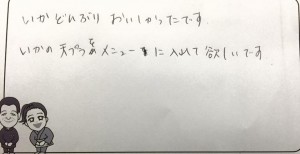 いかどんぶり おいしかったです
いかの天プラをメニューに入れて欲しいです